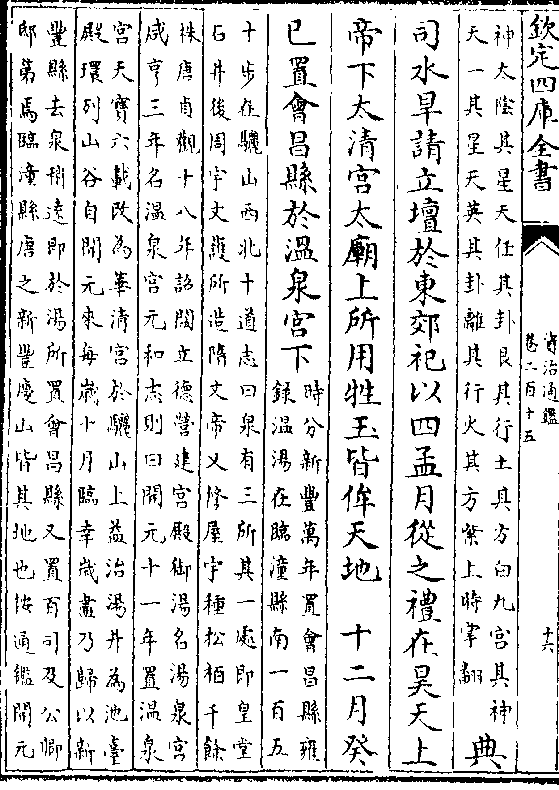 欽定四庫全書
資治通鑑
卷二百十五
十六
神太陰其星天任其卦艮其行土其方白九宮其神
天一其星天英其卦離其行火其方紫上時掌翻
典
司水旱請立壇於東郊祀以四孟月從之禮在昊天上
帝下太清宮太廟上所用牲玉皆侔天地
十二月癸
已置會昌縣於溫泉宮下
時分新豐萬年置會昌縣雍
錄溫湯在臨潼縣南一百五
十步在驪山西北十道志曰泉有三所其一處即皇堂
石井後周宇文護所造隋文帝又修屋宇種松栢千餘
株唐貞觀十八年詔閻立德營建宮殿御湯名湯泉宮
咸亨三年名溫泉宮元和志則曰開元十一年置溫泉
宮天寶六載改為華清宮於驪山上益治湯井為池臺
殿環列山谷自開元來每歲十月臨幸歲盡乃歸以新
豐縣去泉稍遠即於湯所置會昌縣又置百司及公卿
邸第焉臨潼縣唐之新豐慶山皆其地也按通鑑開元